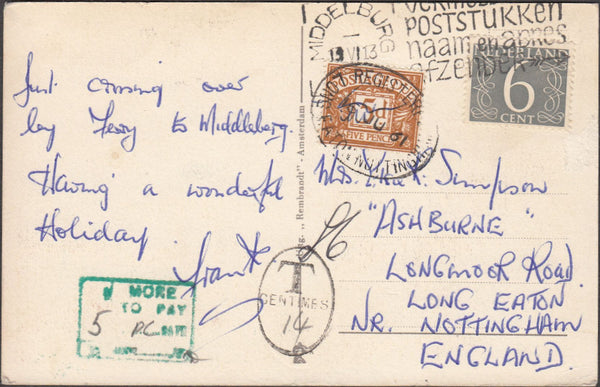 MIDDELBURG
13 VI 13
POSTSTUKKEN
naam en adres
afzender
NEDERLAND
6
CENT
5D
FIVE PENCE
Just coming over
by Ferry to Middleberg.
Having a wonderful
Holiday.
Frank
"Rembrandt" - Amsterdam
Simpson
"ASHBURNE"
LONGMOOR ROAD
LONG EATON
NR. NOTTINGHAM
ENGLAND.
T
CENTIMES
14
MORE
TO PAY
5